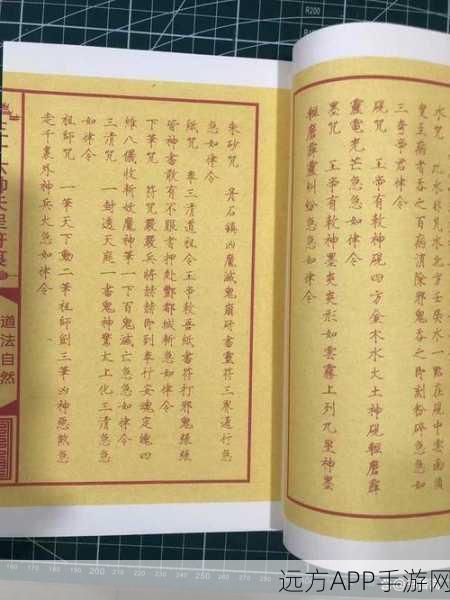 水咒 此水非凡水北方壬癸水一點在硯中雲雨須
臾至病者吞之百病消除邪鬼吞之即刻粉碎急急如
三奇帝君律令
硯咒 王帝有敕神硯四方金木水火土神硯輕磨霹
靂電光芒急急如律令
墨咒 王帝有敕神墨炎炎形如雲霧上列九星神墨
輕磨霹靂糾紛急急如律令
朱砂咒 丹石鎮凶魔滅鬼崩研書靈符三界通行急
急如律令
紙咒 奉三清道祖令王帝敕吾紙書符打邪鬼張張
皆神書敢有不服者押赴酆都城斬急如律令
下筆咒 符咒嚴嚴兵將赫赫即到奉行安魂定魄四
維八儀收斬妖魔神筆一下百鬼滅亡急急如律令
三清咒 一封透天庭一書鬼神驚太上化三清急急
如律令
祖師咒 一筆天下動二筆祖師劍三筆凶神惡煞急
走千裏外神兵火急如律令
道法自然
R200
160 170 180 190 200 210 220 230 240 250 260 270 280 290 300 310 320
远方APP手游网